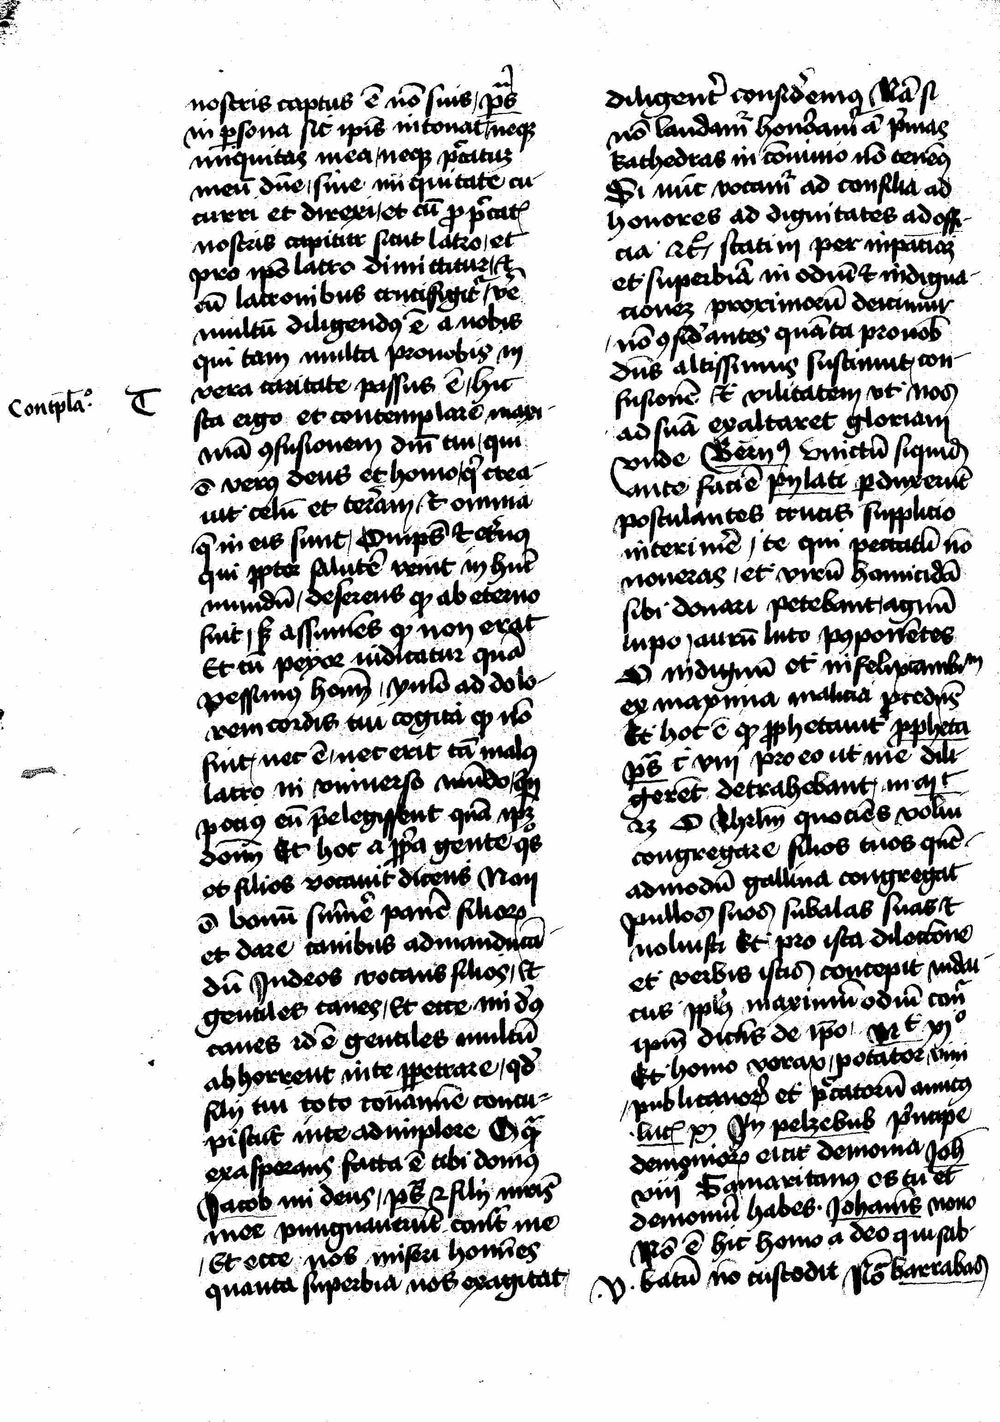 nostris captus ē nō suis, ps̄
in ꝑsona sic ipīs intonat neqꝫ
iniquitas mea, neqꝫ pc̄catuꝫ
meū dn̄e, sine iniquitate cu
curri et direxi, et cū pro pc̄cat̄
nostris capitur sicut latro, et
pro ipō latro dimittitur, et
cū latronibus crucifigit᷑, vn̄
multū diligendus ē a nobis
qui tam multa pro nobis in
vera caritate passus ē, hic
Contp̄lao. T
sta ergo et contemplare maxi
mā ꝯfusionem dn̄i tui, qui
ē verꝰ deus et homo, q̄ crea
uit celū et terram, et omnia
q̄ in eis sunt, Om̄ps̄ et et̄nꝰ
qui ꝓpter salutē venit in hūc
mundū, deserens qđ ab eterno
fuit, ꝫ assumēs qđ non erat
Et tū peyor iudicatur quā
pessimꝰ homī, vn̄ ad dolo
rem cordis tui cogita qđ nō
fuit, nec ē, nec erit tā malꝰ
latro in vniuerso mūdo, qn̄
pociꝰ eū p̄elegissent quā ipꝫ
dom̄ Et hoc a ꝓp̄a gente qͦs
et filios vocauit dicens Non
ē bonū sumē panē filioꝝ
et dare canibus ad manduca
dū Judeos vocans filios, et
gentiles canes, Et ecce mi dꝰ
canes id ē gentiles multū
abhorrent in te ꝑpetrare, qđ
filij tui toto conamīe concu
piscūt in te adimplere O qͣ
exasperans facta ē tibi domꝰ
Jacob mi deus, ps̄ filij mr̄is
mee pungnauerūt contͣ me
Et ecce nos miseri homīes
quanta superbia nos exagitat
diligent̄ consid̄emꝰ Nā si
nō laudam᷑ honoram᷑ aͭ pͥmas
kathedras in cōuiuio nō tenēꝰ
Si nūc vocam᷑ ad consilia ad
honores ad dignitates ad offi
cia ⁊c̄, statim per inpaciāꝫ
et superbiā in odiū et indigna
cionem proximorū deicimur
nō ꝯsid̄antes quāta pro nobis
dn̄s altissimus sustinuit, con
fusionē et vilitatem vt nos
ad suā exaltaret gloriam
vnde Bern̄ꝰ vinctū siquidē
ante faciē pylati ꝑduxerūt
postulantes crucis supplicio
interimē, te qui peccatū nō
noueras, et virū homicidā
sibi donari petebant, agnū
lupo, aurū luto p̄ponētes
O indignū et infelix cambiū
ex maxima malicia ꝓcedēs
Et hoc ē qđ ꝓphetauit ꝓpheta
ps̄ c viij pro eo ut me dili
gerēt detrahebant, in
23 O Ihrlm̄ quociēs volui
congregare filios tuos quē
admodū gallina congregat
pullos suos sub alas suas et
noluisti Et pro ista dilectiōe
et verbis istis concepit iudai
cus pplūs maximū odiū contͣ
ipm̄ dicēs de ipō, Mͭ xjͦ
Et homo vorax, potator vini
publicanoꝝ et pc̄catorū amicꝰ
luc̄ xj Jn pelzebub pͥncipe
demonioꝝ eicit demonia Joh̄
viijͦ Samaritanꝰ es tu et
demoniū habes. Johānis nono
Nō ē hic homo a deo qui sab
batū nō custodit Nō barrabas